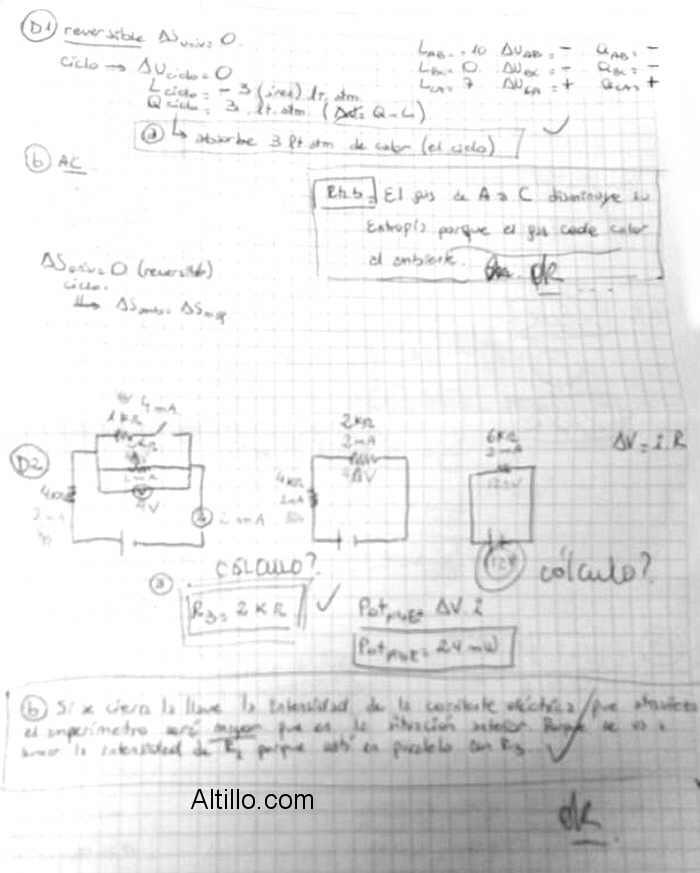 D1 reversible ΔSuniv = 0.
ciclo → ΔUciclo = 0
Lciclo = - 3 (área) lt. atm
Qciclo = 3 lt. atm. (ΔU = Q - L)
LAB = 10 ΔUAB = - QAB = -
LBC = 0. ΔUBC = - QBC = -
LCA = 7 ΔUCA = + QCA = +
a ↳ absorbe 3 lt atm de calor (el ciclo)
b AC
Rta b. El gas de A a C disminuye su
Entropía porque el gas cede calor
al ambiente. ok
ΔSuniv = 0 (reversible)
ciclo.
D2
4 mA
1KΩ
4KΩ
4V
2 mA
2KΩ
2 mA
4V
4KΩ
2mA
6KΩ
2mA
12V
ΔV = i.R
CÁLCULO?
12V
cálculo?
a
R3 = 2 KΩ
PotPILE = ΔV. i
PotPILE = 24 mW
b Si se cierra la llave la intensidad de la corriente eléctrica que atraviesa
el amperímetro será mayor que en la situación anterior. Porque se va a
sumar la intensidad de R2 porque está en paralelo con R3
ok.
Altillo.com